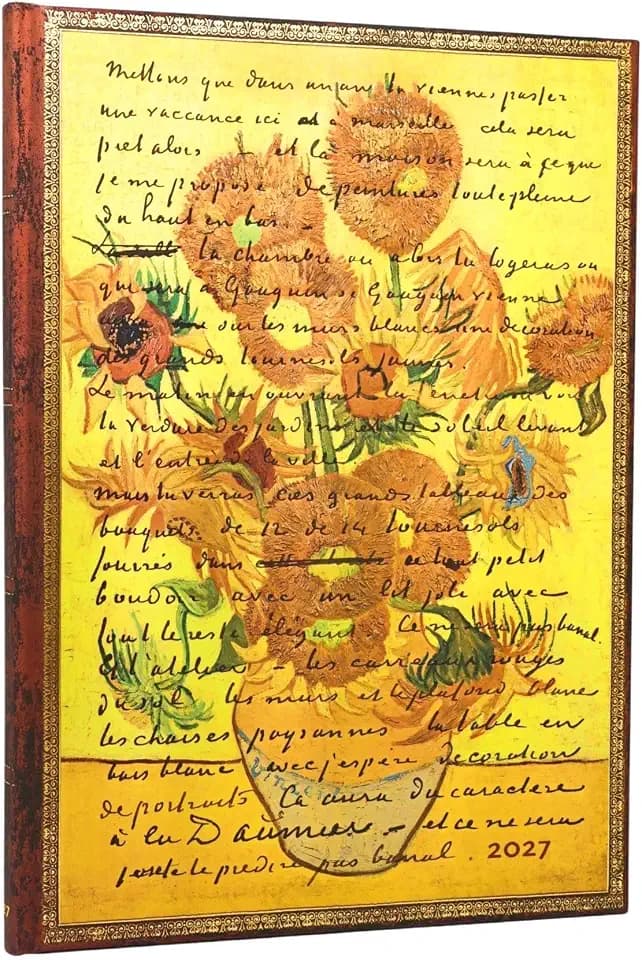 Mettons que dans un an tu viennes passer
une vaccance ici et à marseille cela sera
pret alors – et la maison sera à ce que
je me propose de peintures toute pleine
du haut en bas. –
la chambre ou alors tu logeras ou
que sera à Gauguin si Gauguin vienne
sur les murs blancs une decoration
des grands tournesols jaunes.
Le matin en ouvrant la fenetre on voit
la verdure des jardins et le soleil levant
et l'entree de la ville
mais tu verras ces grands tableaux des
bouquets de 12 de 14 tournesols
fourrés dans ce tout petit
boudoir avec un lit joli avec
tout le reste élégant Ce ne sera pas banal.
Et l'atelier – les carreaux rouges
du sol les murs et le plafond blancs
les chaises paysannes la table en
bois blanc avec j'espère decoration
de portraits Ça aura du caractere
à la Daumier – et ce ne sera
le predire pas banal. 2027